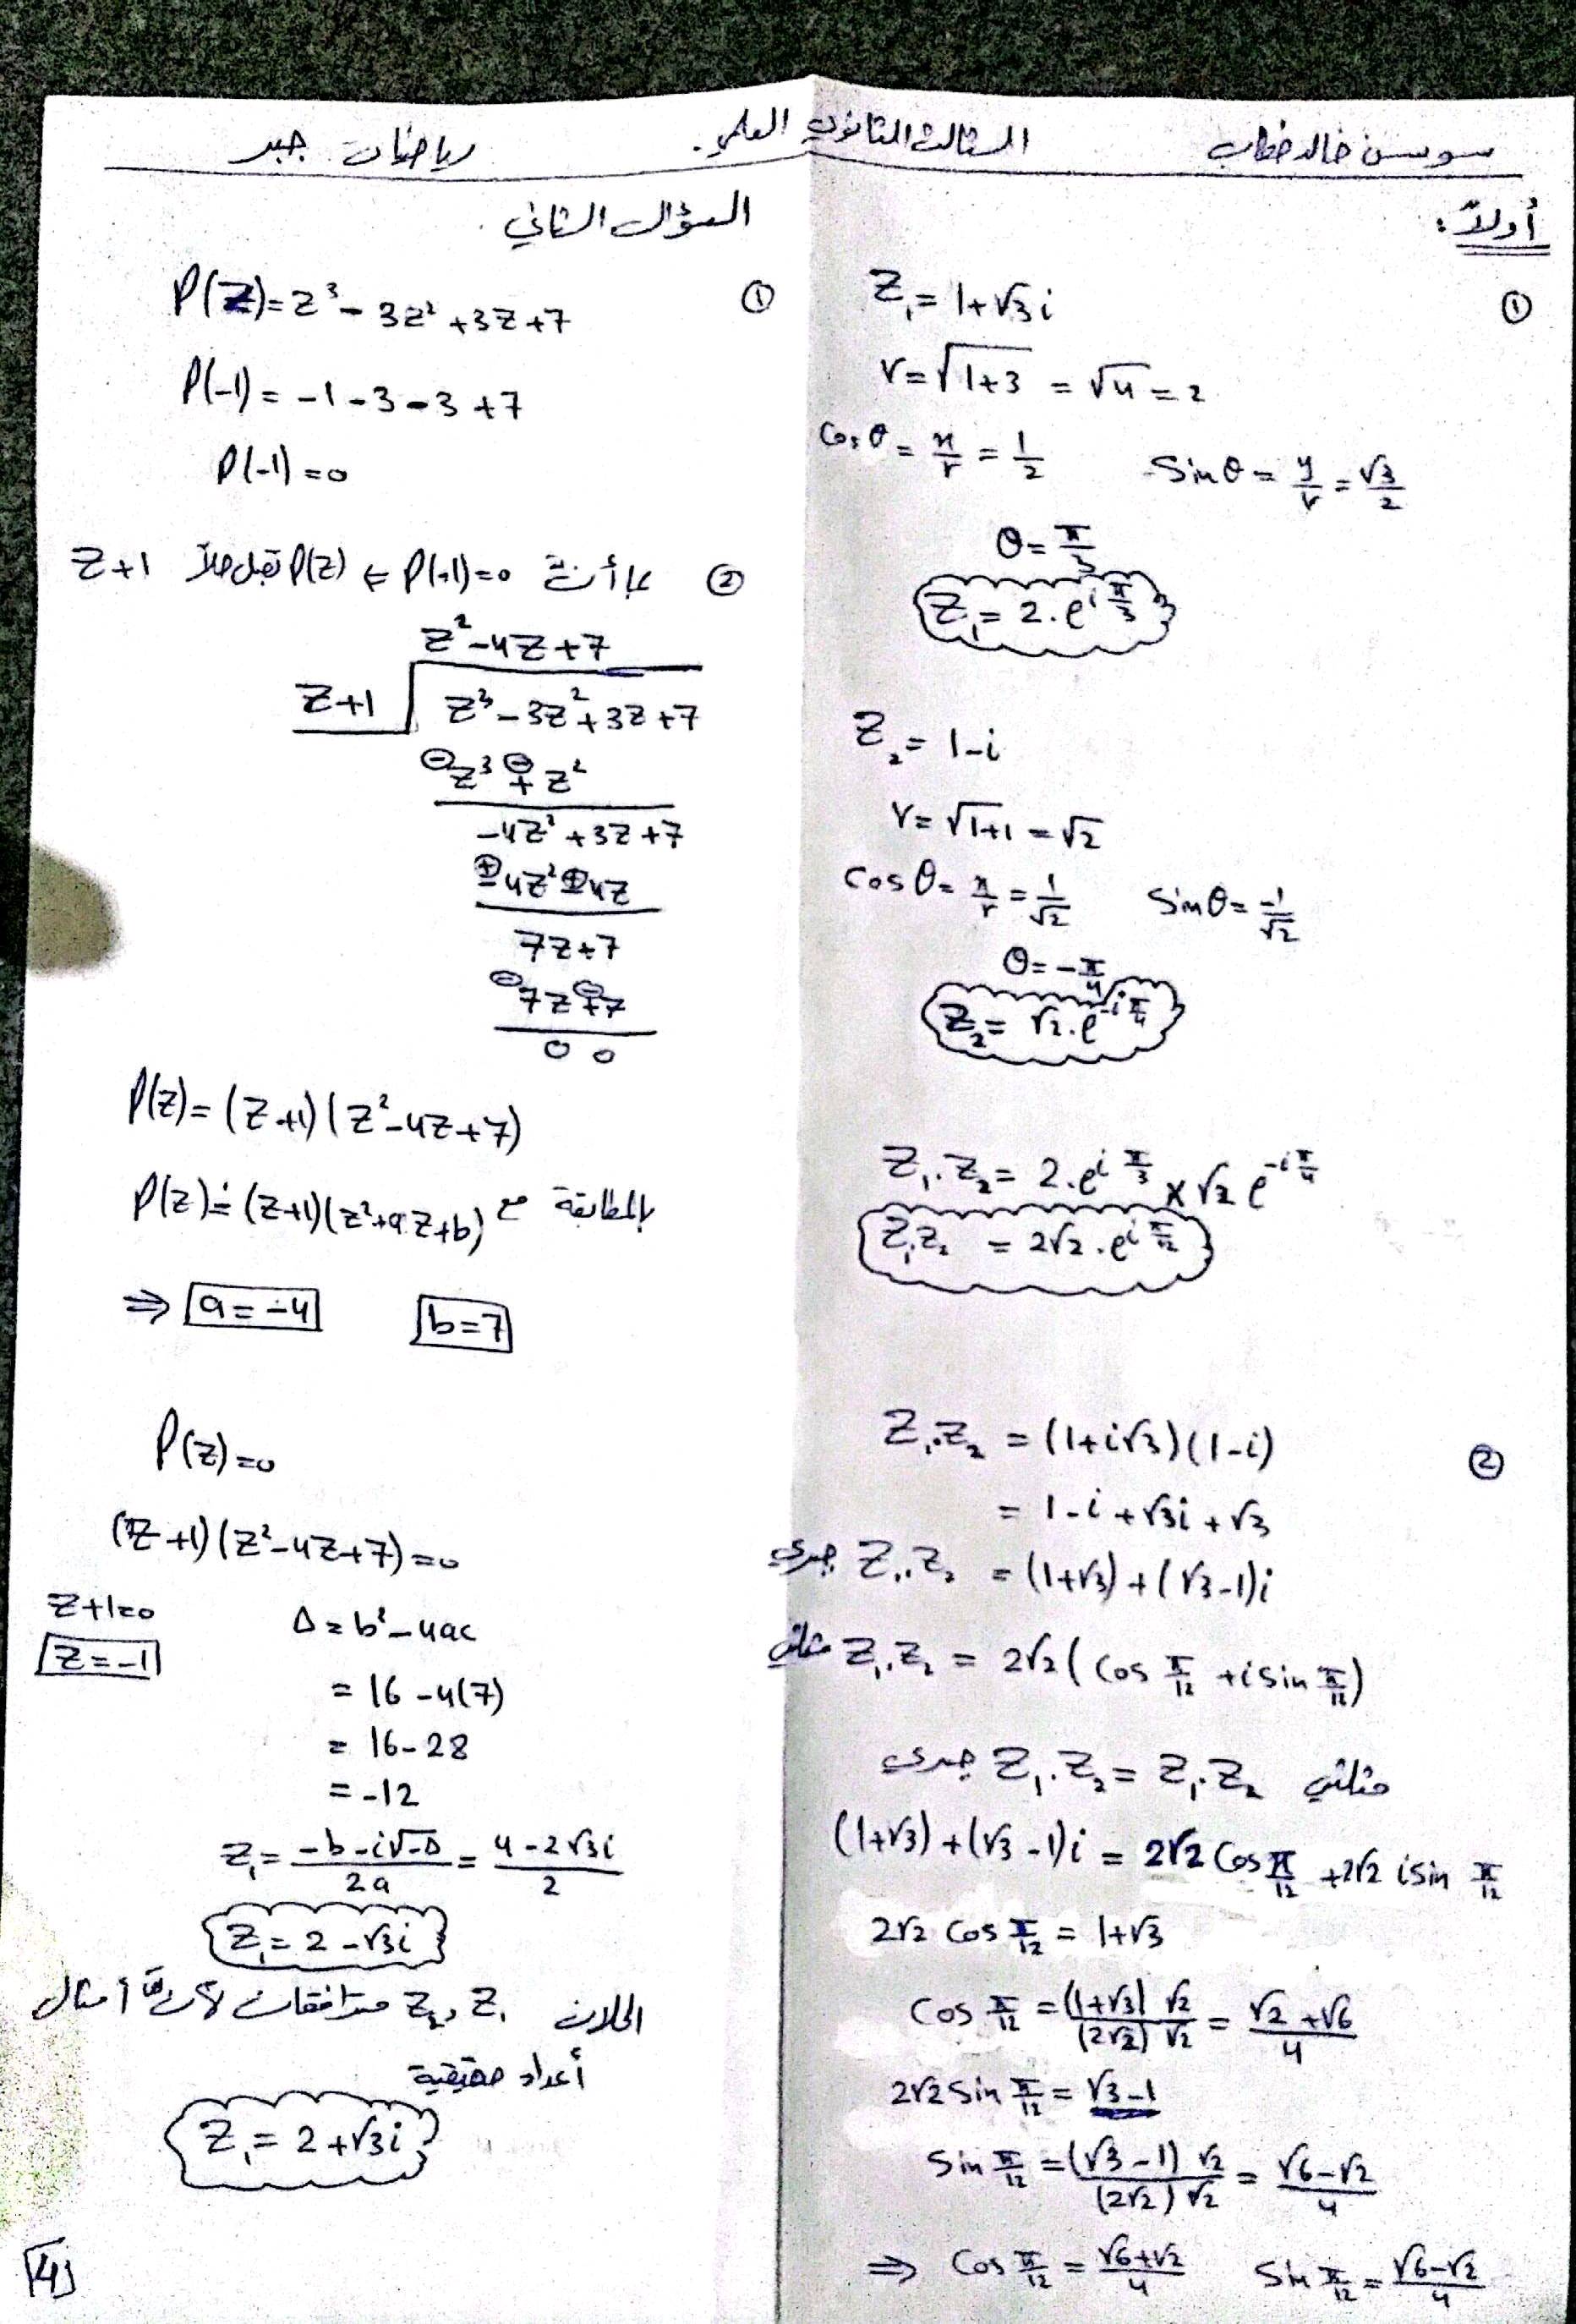 سوسن خالد خطاب الثالث الثانوي العلمي. رياضيات جبر
أولاً:
① Z₁ = 1+√3 i
r = √(1+3) = √4 = 2
Cos θ = x/r = 1/2 Sin θ = y/r = √3/2
θ = π/3
Z₁ = 2.e^(i π/3)
Z₂ = 1-i
r = √(1+1) = √2
cos θ = x/r = 1/√2 Sin θ = -1/√2
θ = -π/4
Z₂ = √2.e^(-i π/4)
Z₁.Z₂ = 2.e^(i π/3) × √2 e^(-i π/4)
Z₁Z₂ = 2√2.e^(i π/12)
② Z₁.Z₂ = (1+i√3)(1-i)
= 1-i+√3i+√3
جبري Z₁.Z₂ = (1+√3)+(√3-1)i
مثلثي Z₁.Z₂ = 2√2(cos π/12 +i sin π/12)
جبري Z₁.Z₂ = Z₁.Z₂ مثلثي
(1+√3)+(√3-1)i = 2√2 Cos π/12 +2√2 i sin π/12
2√2 cos π/12 = 1+√3
Cos π/12 = (1+√3) √2/(2√2) √2 = √2+√6/4
2√2 Sin π/12 = √3-1
Sin π/12 = (√3-1) √2/(2√2) √2 = √6-√2/4
⇒ Cos π/12 = √6+√2/4 Sin π/12 = √6-√2/4
السؤال الثاني.
① P(Z)=Z³-3Z²+3Z+7
P(-1) = -1-3-3+7
P(-1)=0
② بما أنه P(-1)=0 ⇐ P(Z) تقبل حلاً Z+1
Z²-4Z+7
Z+1 Z³-3Z²+3Z+7
⊖Z³ ⊖+ Z²
-4Z²+3Z+7
⊕-4Z² ⊕-4Z
7Z+7
⊖7Z ⊖+7
0 0
P(Z)=(Z+1)(Z²-4Z+7)
بالمطابقة مع P(Z)=(Z+1)(Z²+aZ+b)
⇒ a=-4 b=7
P(Z)=0
(Z+1)(Z²-4Z+7)=0
Z+1=0 Δ=b²-4ac
Z=-1
= 16-4(7)
= 16-28
= -12
Z₁ = -b-i√-Δ/2a = 4-2√3i/2
Z₁=2-√3i
الحلان Z₁ و Z₂ مترافقان لأن أمثال
أعداد حقيقية
Z₁=2+√3i